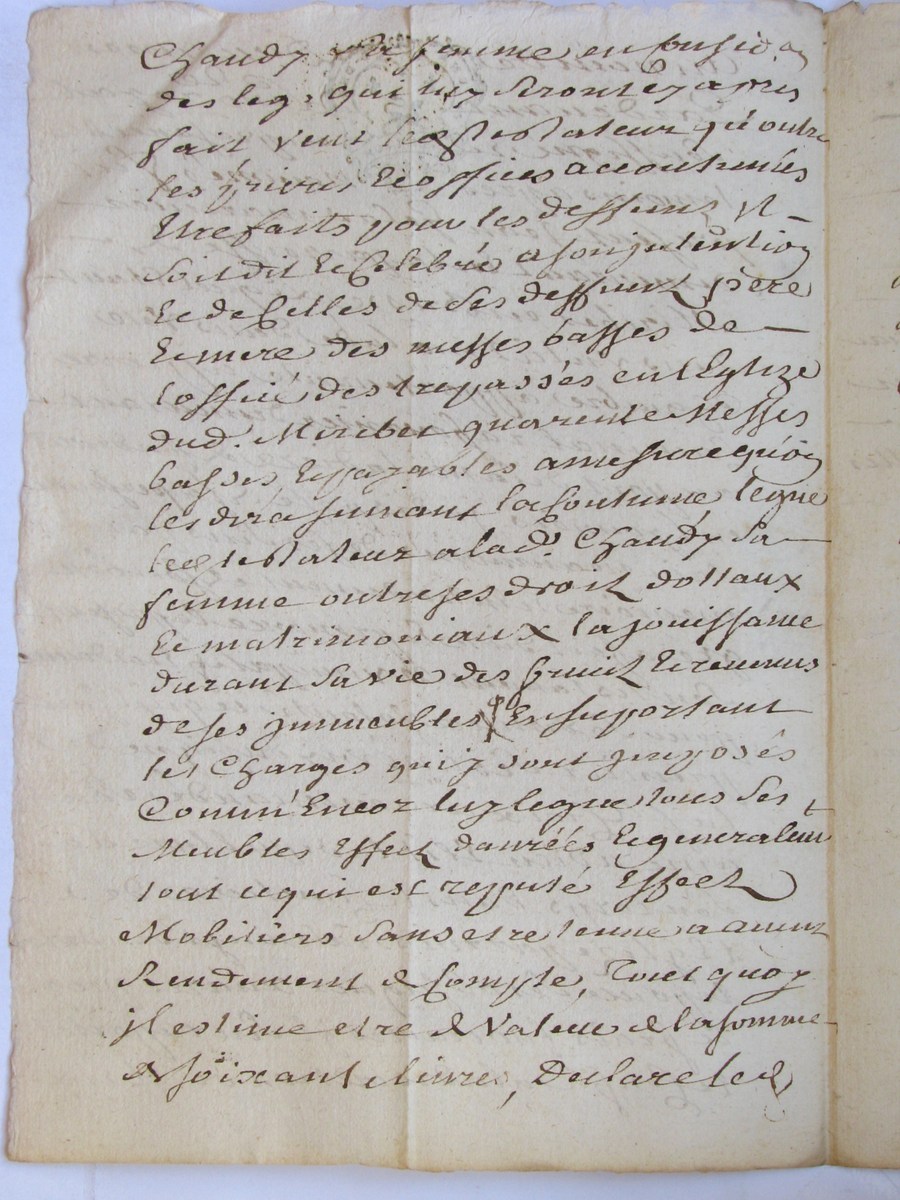 Chaudy sa femme en consid͠on
des leg. qui luy seront cy apres
fait veut led. testateur qu'outre
les prieres Et offices accoutumées
Etre faits pour les deffuns Il
soit dit Et Celebré a son jntention
Et de Celles de ses deffunt pere
Et mere des messes basses de
l'office des trepassés en l'Eglize
dud. Miribel quarente Messes
basses, Et payables a mesure qu'on
les dira suivant la Coutume, legue
led. testateur a lad. Chaudy sa
femme outre ses droit dottaux
Et matrimoniaux la jouissance
durant sa vie des fruit Et revenus
de ses jmmeubles En suportant
les Charges qui y sont jmposés
Comm'Encor luy legue tous ses
Meubles Effect danréés Et generalem͠t
tout ce qui est reputé Effect
Mobiliers sans etre tenue a aucun
Rendement de Compte, Tout quoy
jl estime etre de Valeur de la somme
de soixant livres, Declare led.